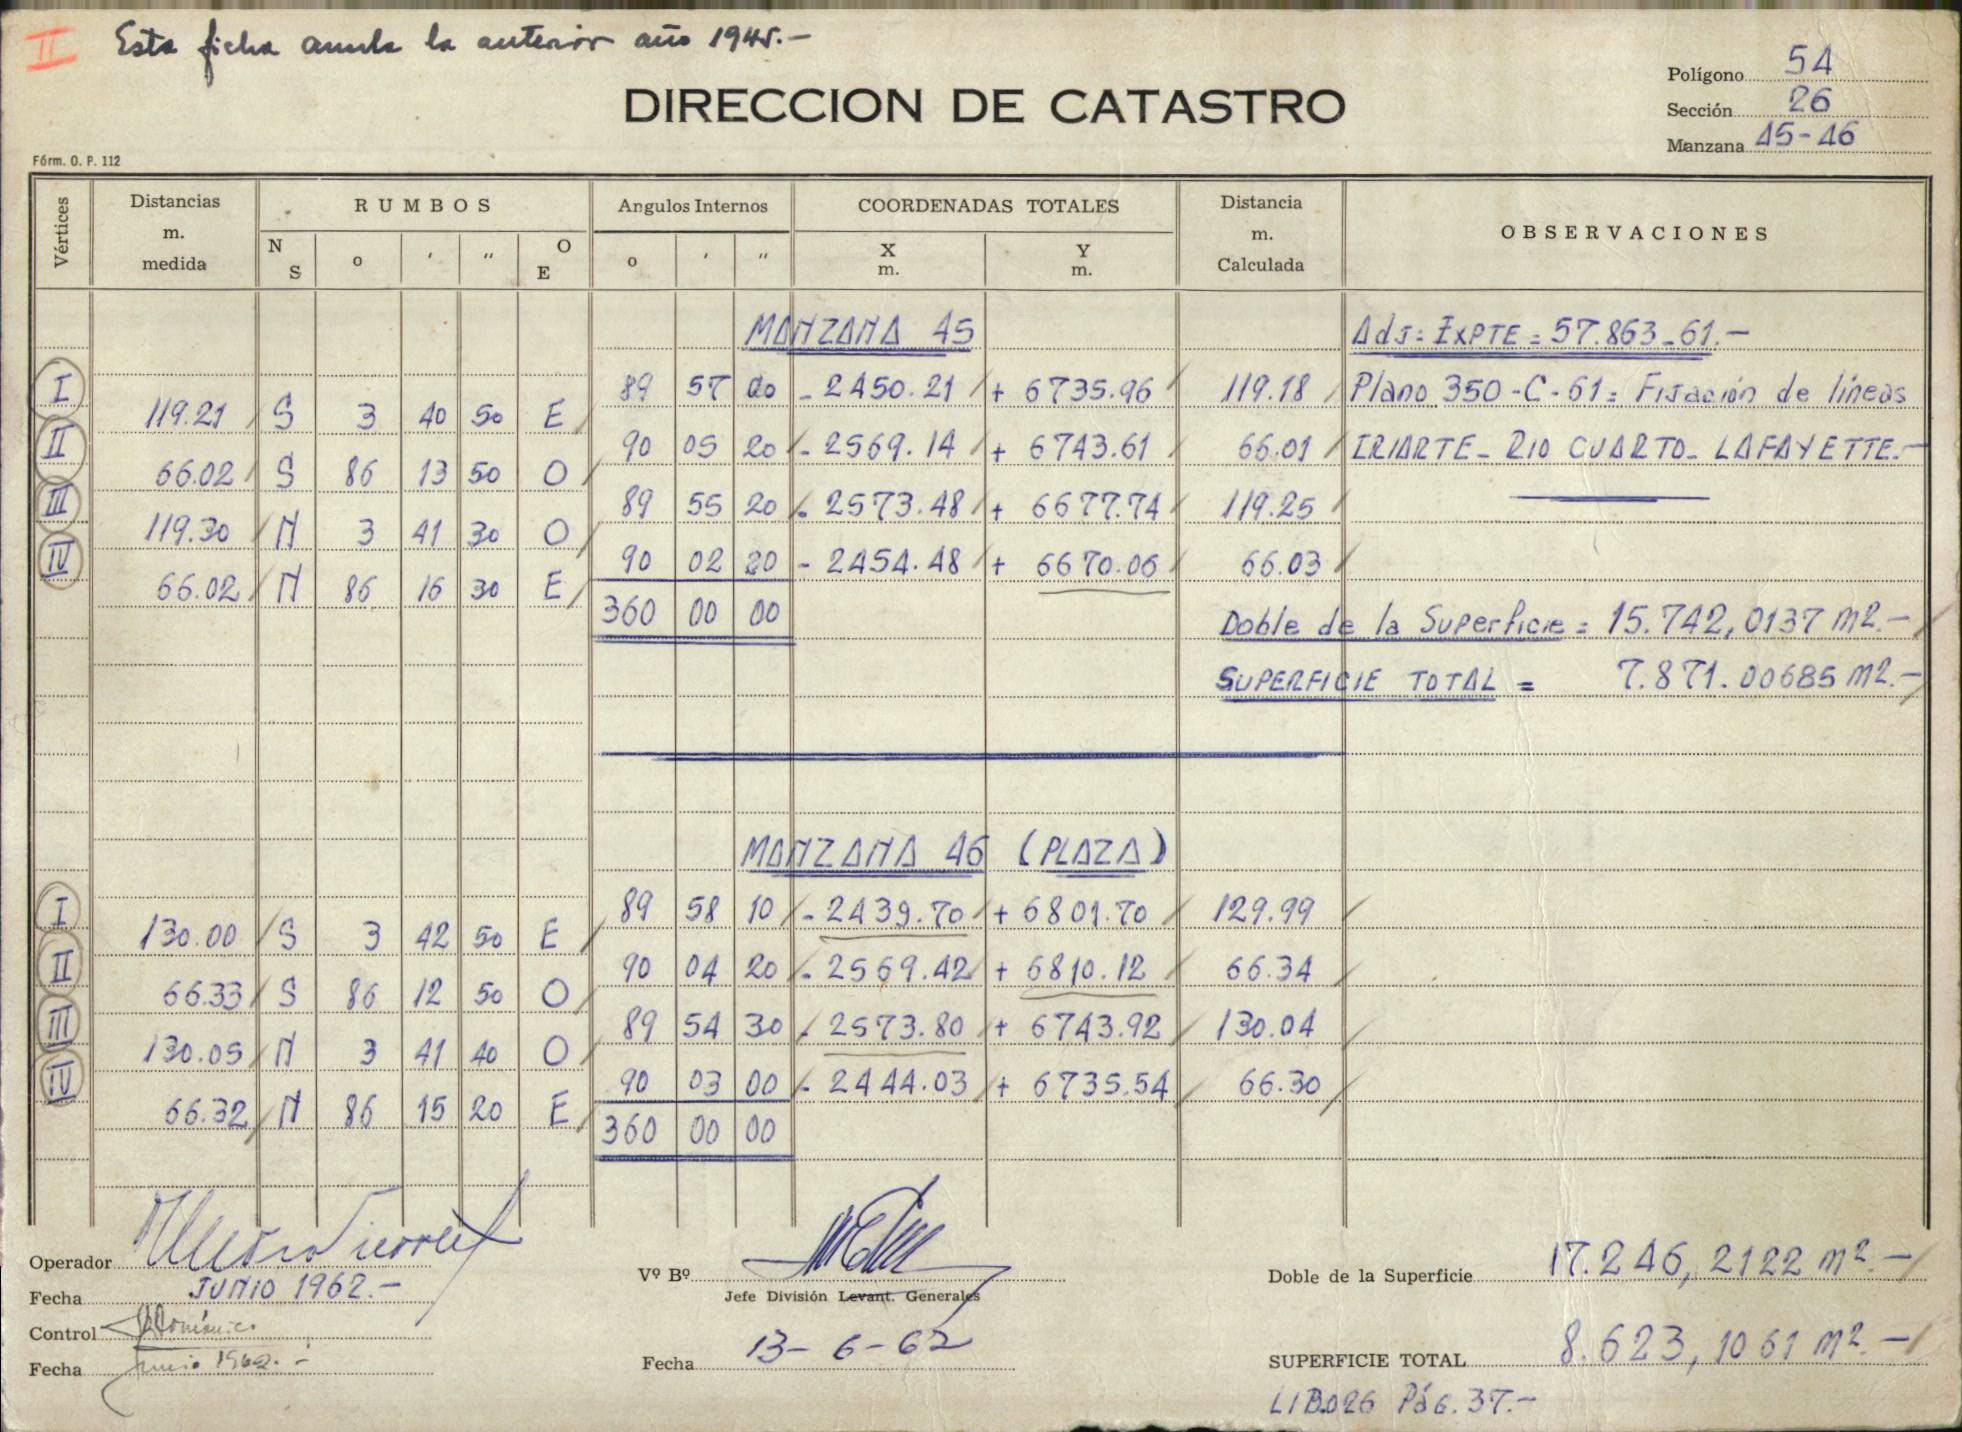 II Esta ficha anula la anterior año 1945.-
DIRECCION DE CATASTRO
Polígono 54
Sección 26
Manzana 45-46
Fórm. O. P. 112
Vértices Distancias m. medida RUMBOS Angulos Internos COORDENADAS TOTALES Distancia m. Calculada OBSERVACIONES
N S o ' " O E o ' " X m. Y m.
MANZANA 45 Adj: EXPTE = 57.863-61.-
I 89 57 00 - 2450.21 + 6735.96 119.18 Plano 350-C-61: Fijación de líneas
119.21 S 3 40 50 E
II 90 05 20 - 2569.14 + 6743.61 66.01 IRIARTE - RIO CUARTO - LAFAYETTE.-
66.02 S 86 13 50 O
III 89 55 20 - 2573.48 + 6677.74 119.25
119.30 N 3 41 30 O
IV 90 02 20 - 2454.48 + 6670.06 66.03
66.02 N 86 16 30 E
360 00 00 Doble de la Superficie = 15.742,0137 m2.-
SUPERFICIE TOTAL = 7.871.00685 m2.-
MANZANA 46 (PLAZA)
I 89 58 10 - 2439.70 + 6801.70 129.99
130.00 S 3 42 50 E
II 90 04 20 - 2569.42 + 6810.12 66.34
66.33 S 86 12 50 O
III 89 54 30 - 2573.80 + 6743.92 130.04
130.05 N 3 41 40 O
IV 90 03 00 - 2444.03 + 6735.54 66.30
66.32 N 86 15 20 E
360 00 00
Operador
Fecha JUNIO 1962.-
Control
Fecha Junio 1962.-
Vº Bº
Jefe División Levant. Generales
Fecha 13-6-62
Doble de la Superficie 17.246,2122 m2.-
SUPERFICIE TOTAL 8.623,1061 m2.-
LIB.026 Pág. 37.-